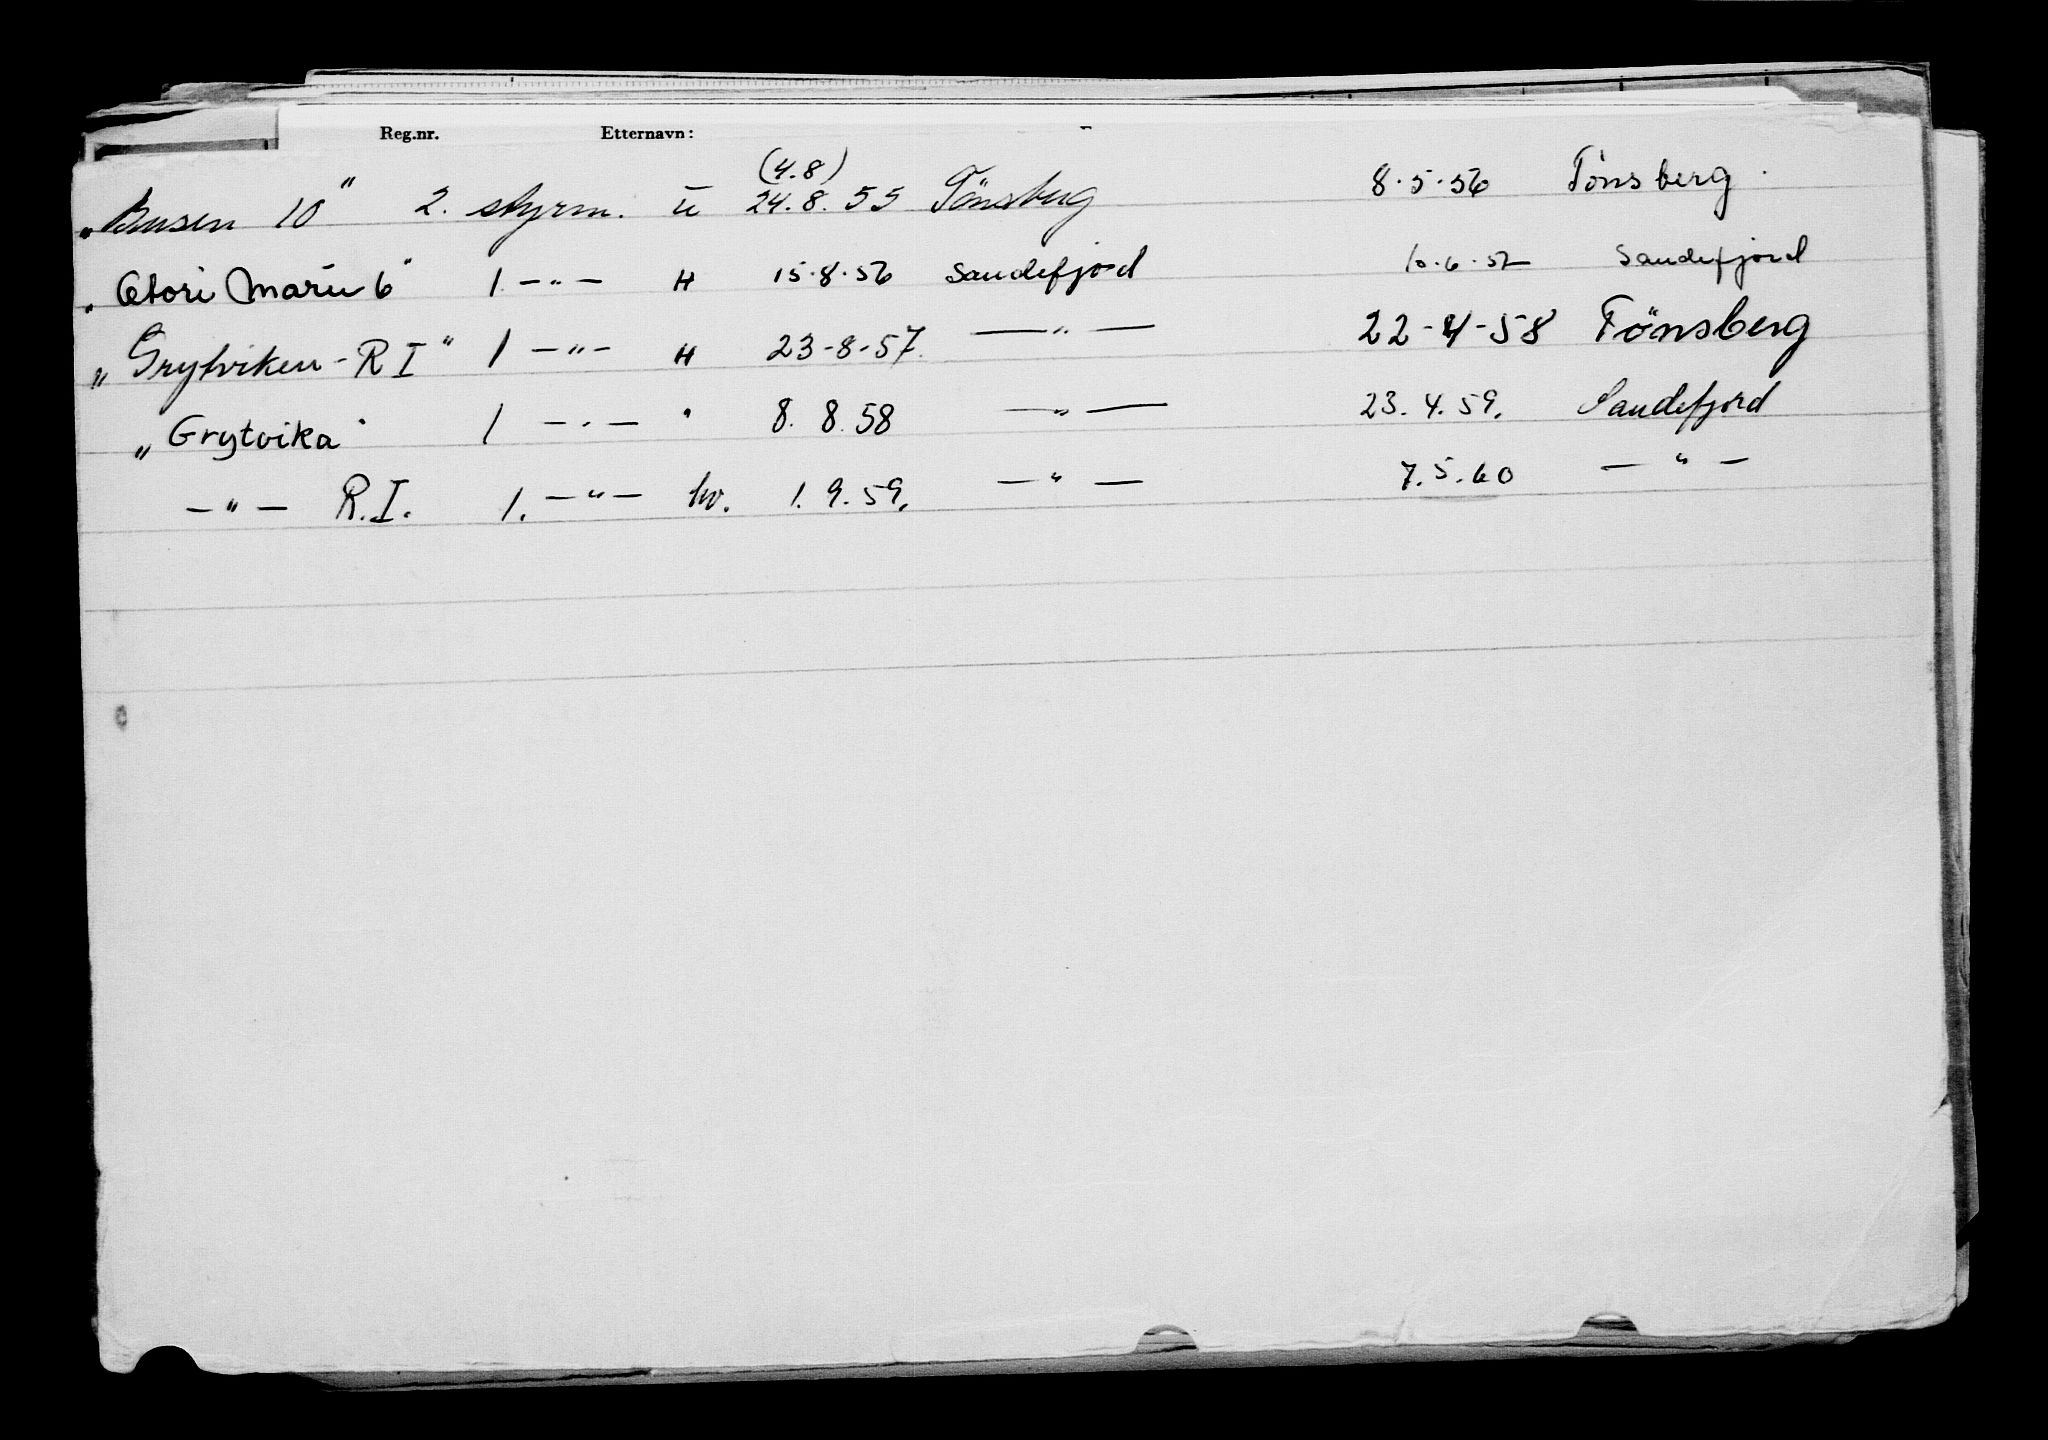 Reg.nr. Etternavn:
(4.8)
„Busen 10" 2. styrm. u 24.8.55 Tönsberg 8.5.56 Tönsberg.
„Otori Maru 6" 1 —"— H 15.8.56 Sandefjord 10.6.57 Sandefjord
„Grytviken-R I" 1 —"— H 23-8-57. —"— 22-4-58 Tönsberg
„Grytvika" 1 —"— " 8. 8. 58 —"— 23. 4. 59. Sandefjord
—"— R.I. 1. —"— hv. 1. 9. 59. —"— 7. 5. 60 —"—